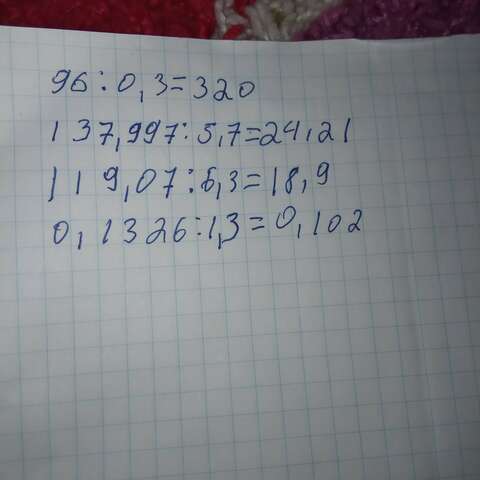 96:0,3=320
137,997:5,7=24,21
119,07:6,3=18,9
0,1326:1,3=0,102